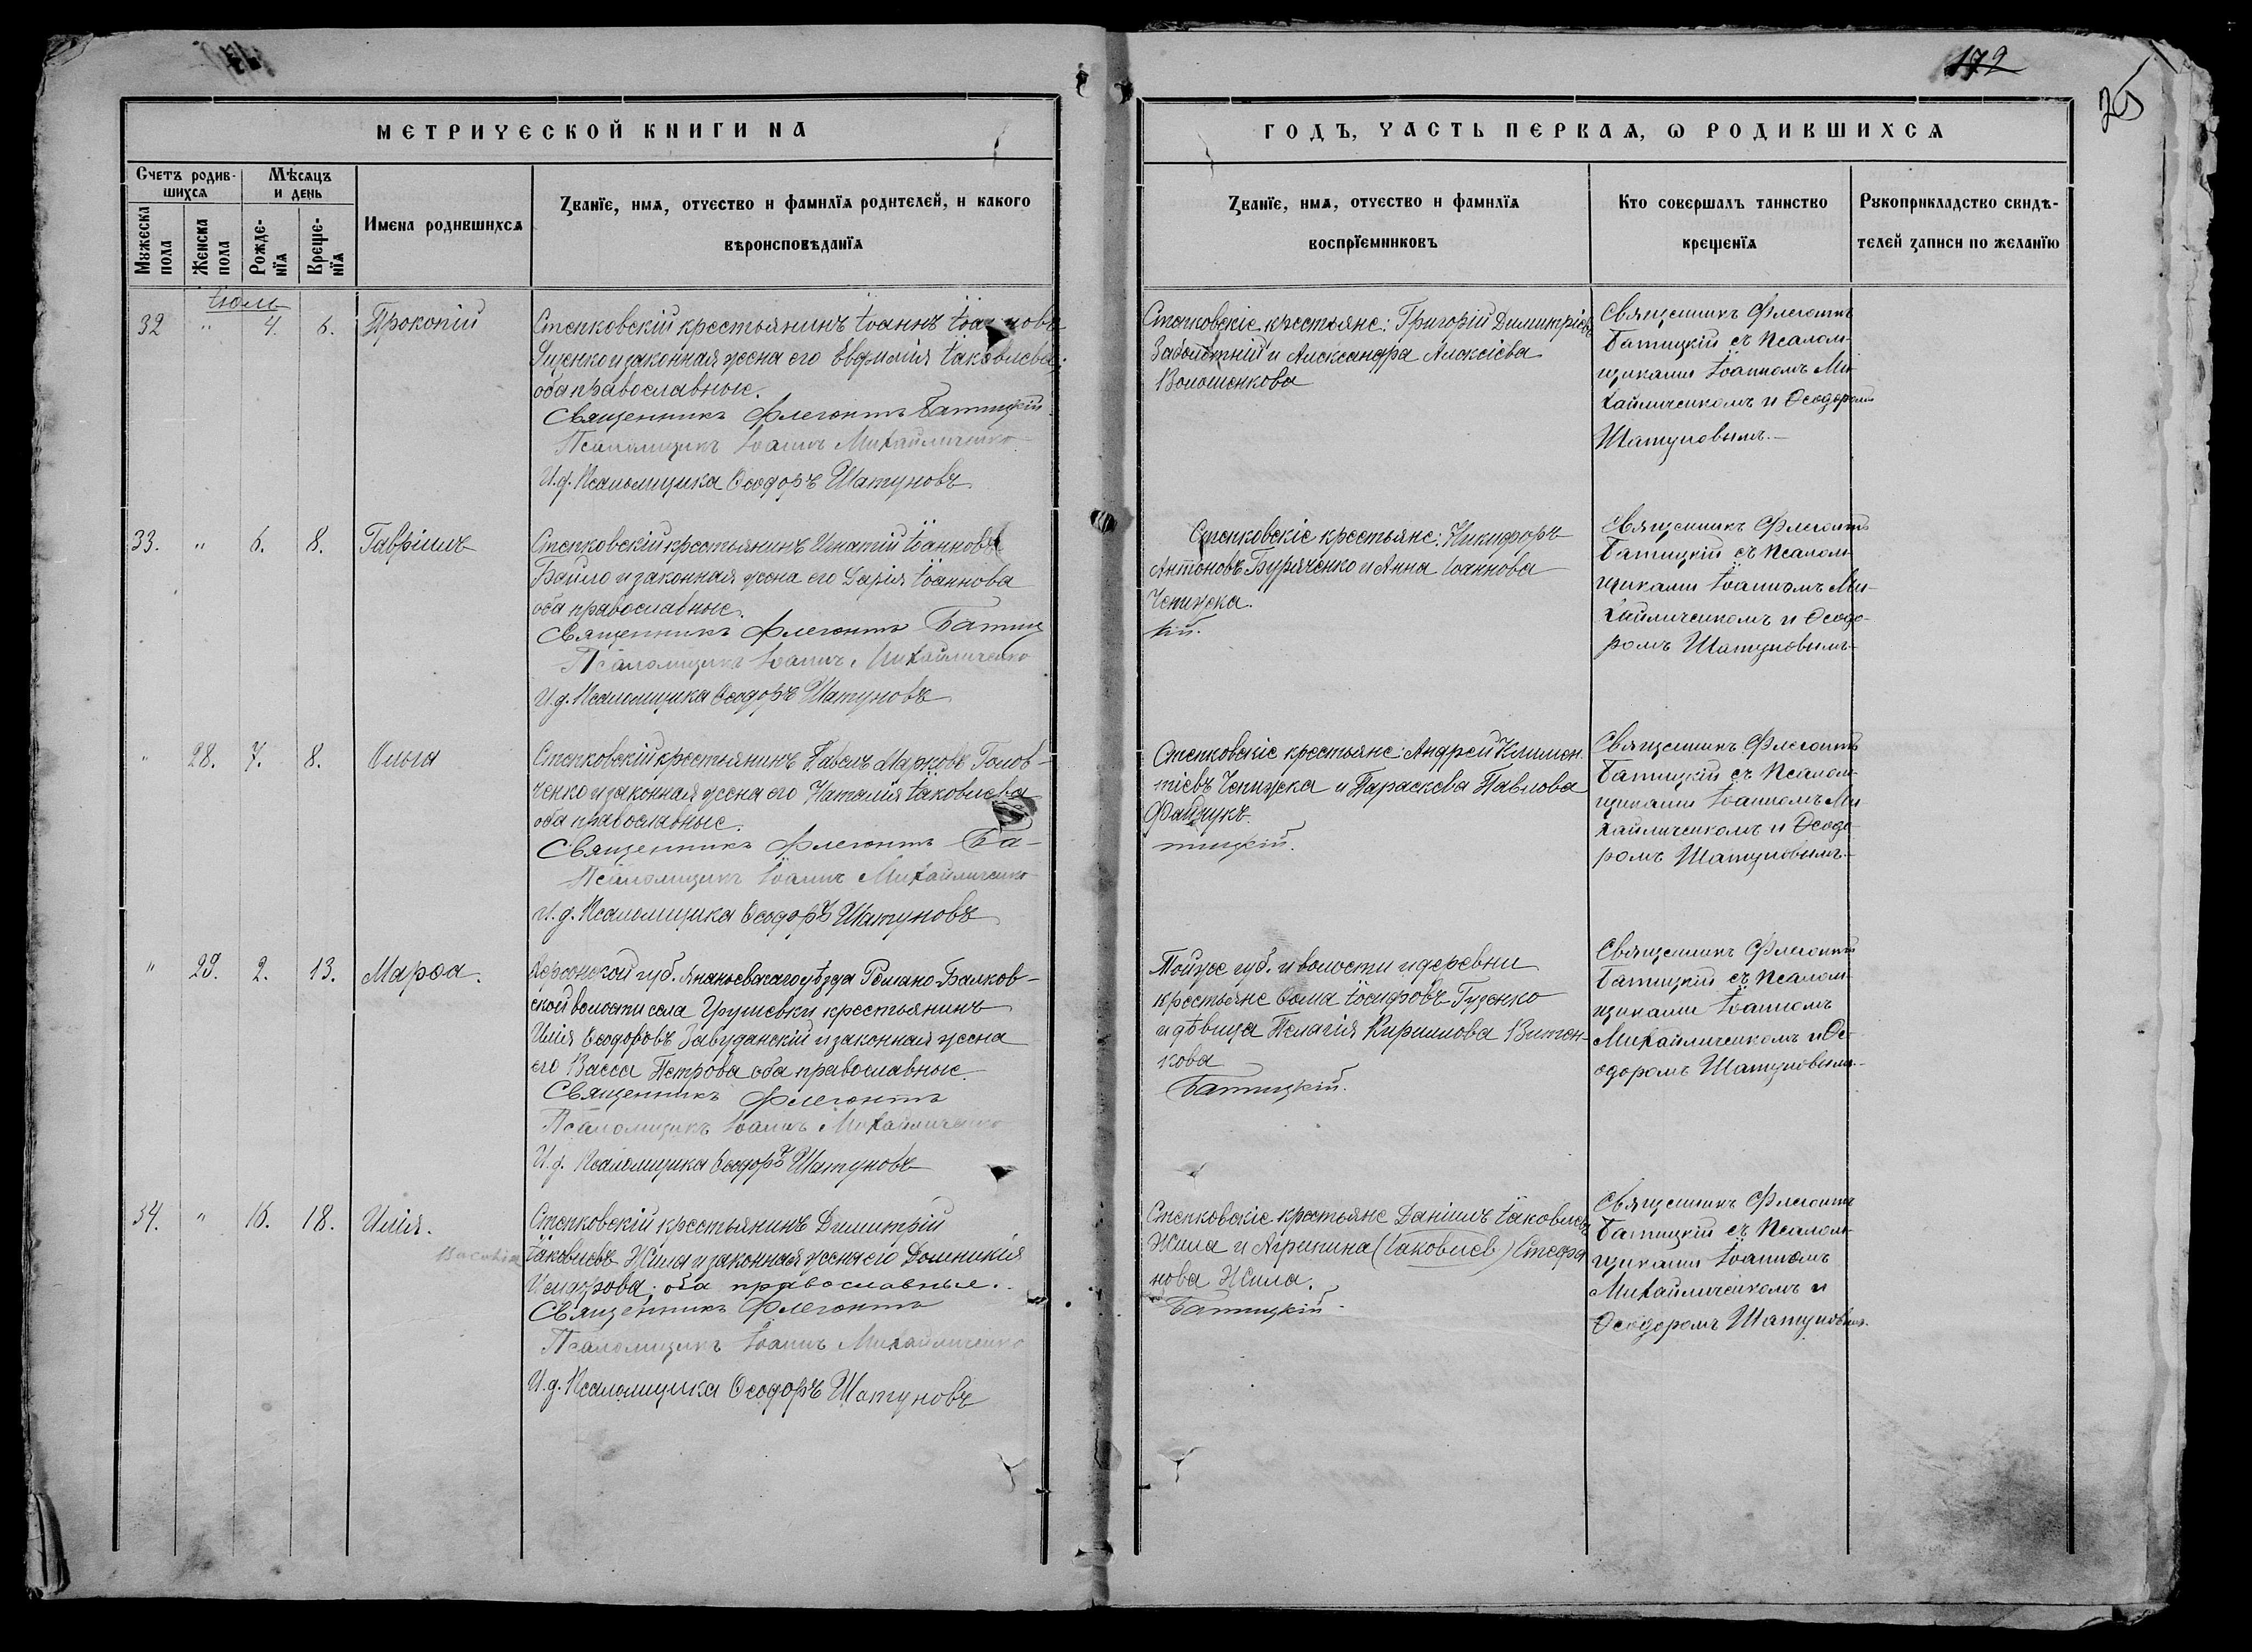 172
25
МЕТРИЧЕСКОЙ КНИГИ НА
ГОДЪ, ЧАСТЬ ПЕРВАЯ, Ѡ РОДИВШИХСЯ
Счетъ родив-
шихся
Мѣсяцъ
и день
Мужеска
пола
Женска
пола
Рожде-
нїя
Креще-
нїя
Имена родившихся
Званїе, имя, отчество и фамилїя родителей, и какого
вѣроисповѣданїя
Званїе, имя, отчество и фамилїя
воспрїемниковъ
Кто совершалъ таинство
крещенїя
Рукоприкладство свидѣ-
телей записи по желанїю
Іюль
32 " 4. 6. Прокопій
Степковскій крестьянинъ Іоаннъ Іоанновъ
Яценко и законная жена его Евдокія Іаковлева;
оба православные.
Священникъ Флегонтъ Батицкій
Псаломщикъ Іоаннъ Михайличенко
И.д. Псаломщика Ѳеодоръ Шатуновъ
Степковскіе крестьяне: Григорій Димитріевъ
Заболотній и Александра Алексіева
Волошенкова
Священникъ Флегонтъ
Батицкій съ псалом-
щиками Іоанномъ Ми-
хайличенкомъ и Ѳеодоромъ
Шатуновымъ.
33. " 6. 8. Гавріилъ
Степковскій крестьянинъ Игнатій Іоанновъ
Бойло и законная жена его Дарія Іоаннова
оба православные.
Священникъ Флегонтъ Батиц
Псаломщикъ Іоаннъ Михайличенко
И.д. Псаломщика Ѳеодоръ Шатуновъ
Степковскіе крестьяне: Никифоръ
Антоновъ Буряченко и Анна Іоаннова
Чепижка.
кій.
Священникъ Флегонтъ
Батицкій съ псалом-
щиками Іоанномъ Ми-
хайличенкомъ и Ѳеодо-
ромъ Шатуновымъ
" 28. 7. 8. Ольга
Степковскій крестьянинъ Павелъ Марковъ Голов-
ченко и законная жена его Наталія Іаковлева
оба православные.
Священникъ Флегонтъ Ба-
Псаломщикъ Іоаннъ Михайличенко
И.д. Псаломщика Ѳеодоръ Шатуновъ
Степковскіе крестьяне: Андрей Климен-
тіевъ Чепижка и Параскева Павлова
Файчукъ.
тицкій.
Священникъ Флегонтъ
Батицкій съ псалом-
щиками Іоанномъ Ми-
хайличенкомъ и Ѳеодо-
ромъ Шатуновымъ.
" 29. 2. 13. Марѳа.
Херсонской губ. Ананьевскаго уѣзда Романо-Балков-
ской волости села Грушевки крестьянинъ
Илія Ѳеодоровъ Завуданскій и законная жена
его Васса Петрова оба православные.
Священникъ Флегонтъ
Псаломщикъ Іоаннъ Михайличенко
И.д. Псаломщика Ѳеодоръ Шатуновъ
Той же губ. и волости и деревни
крестьяне Ѳома Іосифовъ Гуденко
и дѣвица Пелагія Кириллова Витен-
кова
Батицкій.
Священникъ Флегонтъ
Батицкій съ псалом-
щиками Іоанномъ
Михайличенкомъ и Ѳе-
одоромъ Шатуновымъ.
34. " 16. 18. Илія.
Степковскій крестьянинъ Димитрій
Іаковлевъ Жила и законная жена его Домникія
Исидорова; оба православные.
Священникъ Флегонтъ
Псаломщикъ Іоаннъ Михайличенко
И.д. Псаломщика Ѳеодоръ Шатуновъ
Степковскіе крестьяне Даніилъ Іаковлевъ
Жила и Агрипина (Іаковлев) Стефа
нова Жила.
Батицкій.
Священникъ Флегонтъ
Батицкій съ псалом-
щиками Іоанномъ
Михайличенкомъ и
Ѳеодоромъ Шатуновымъ.